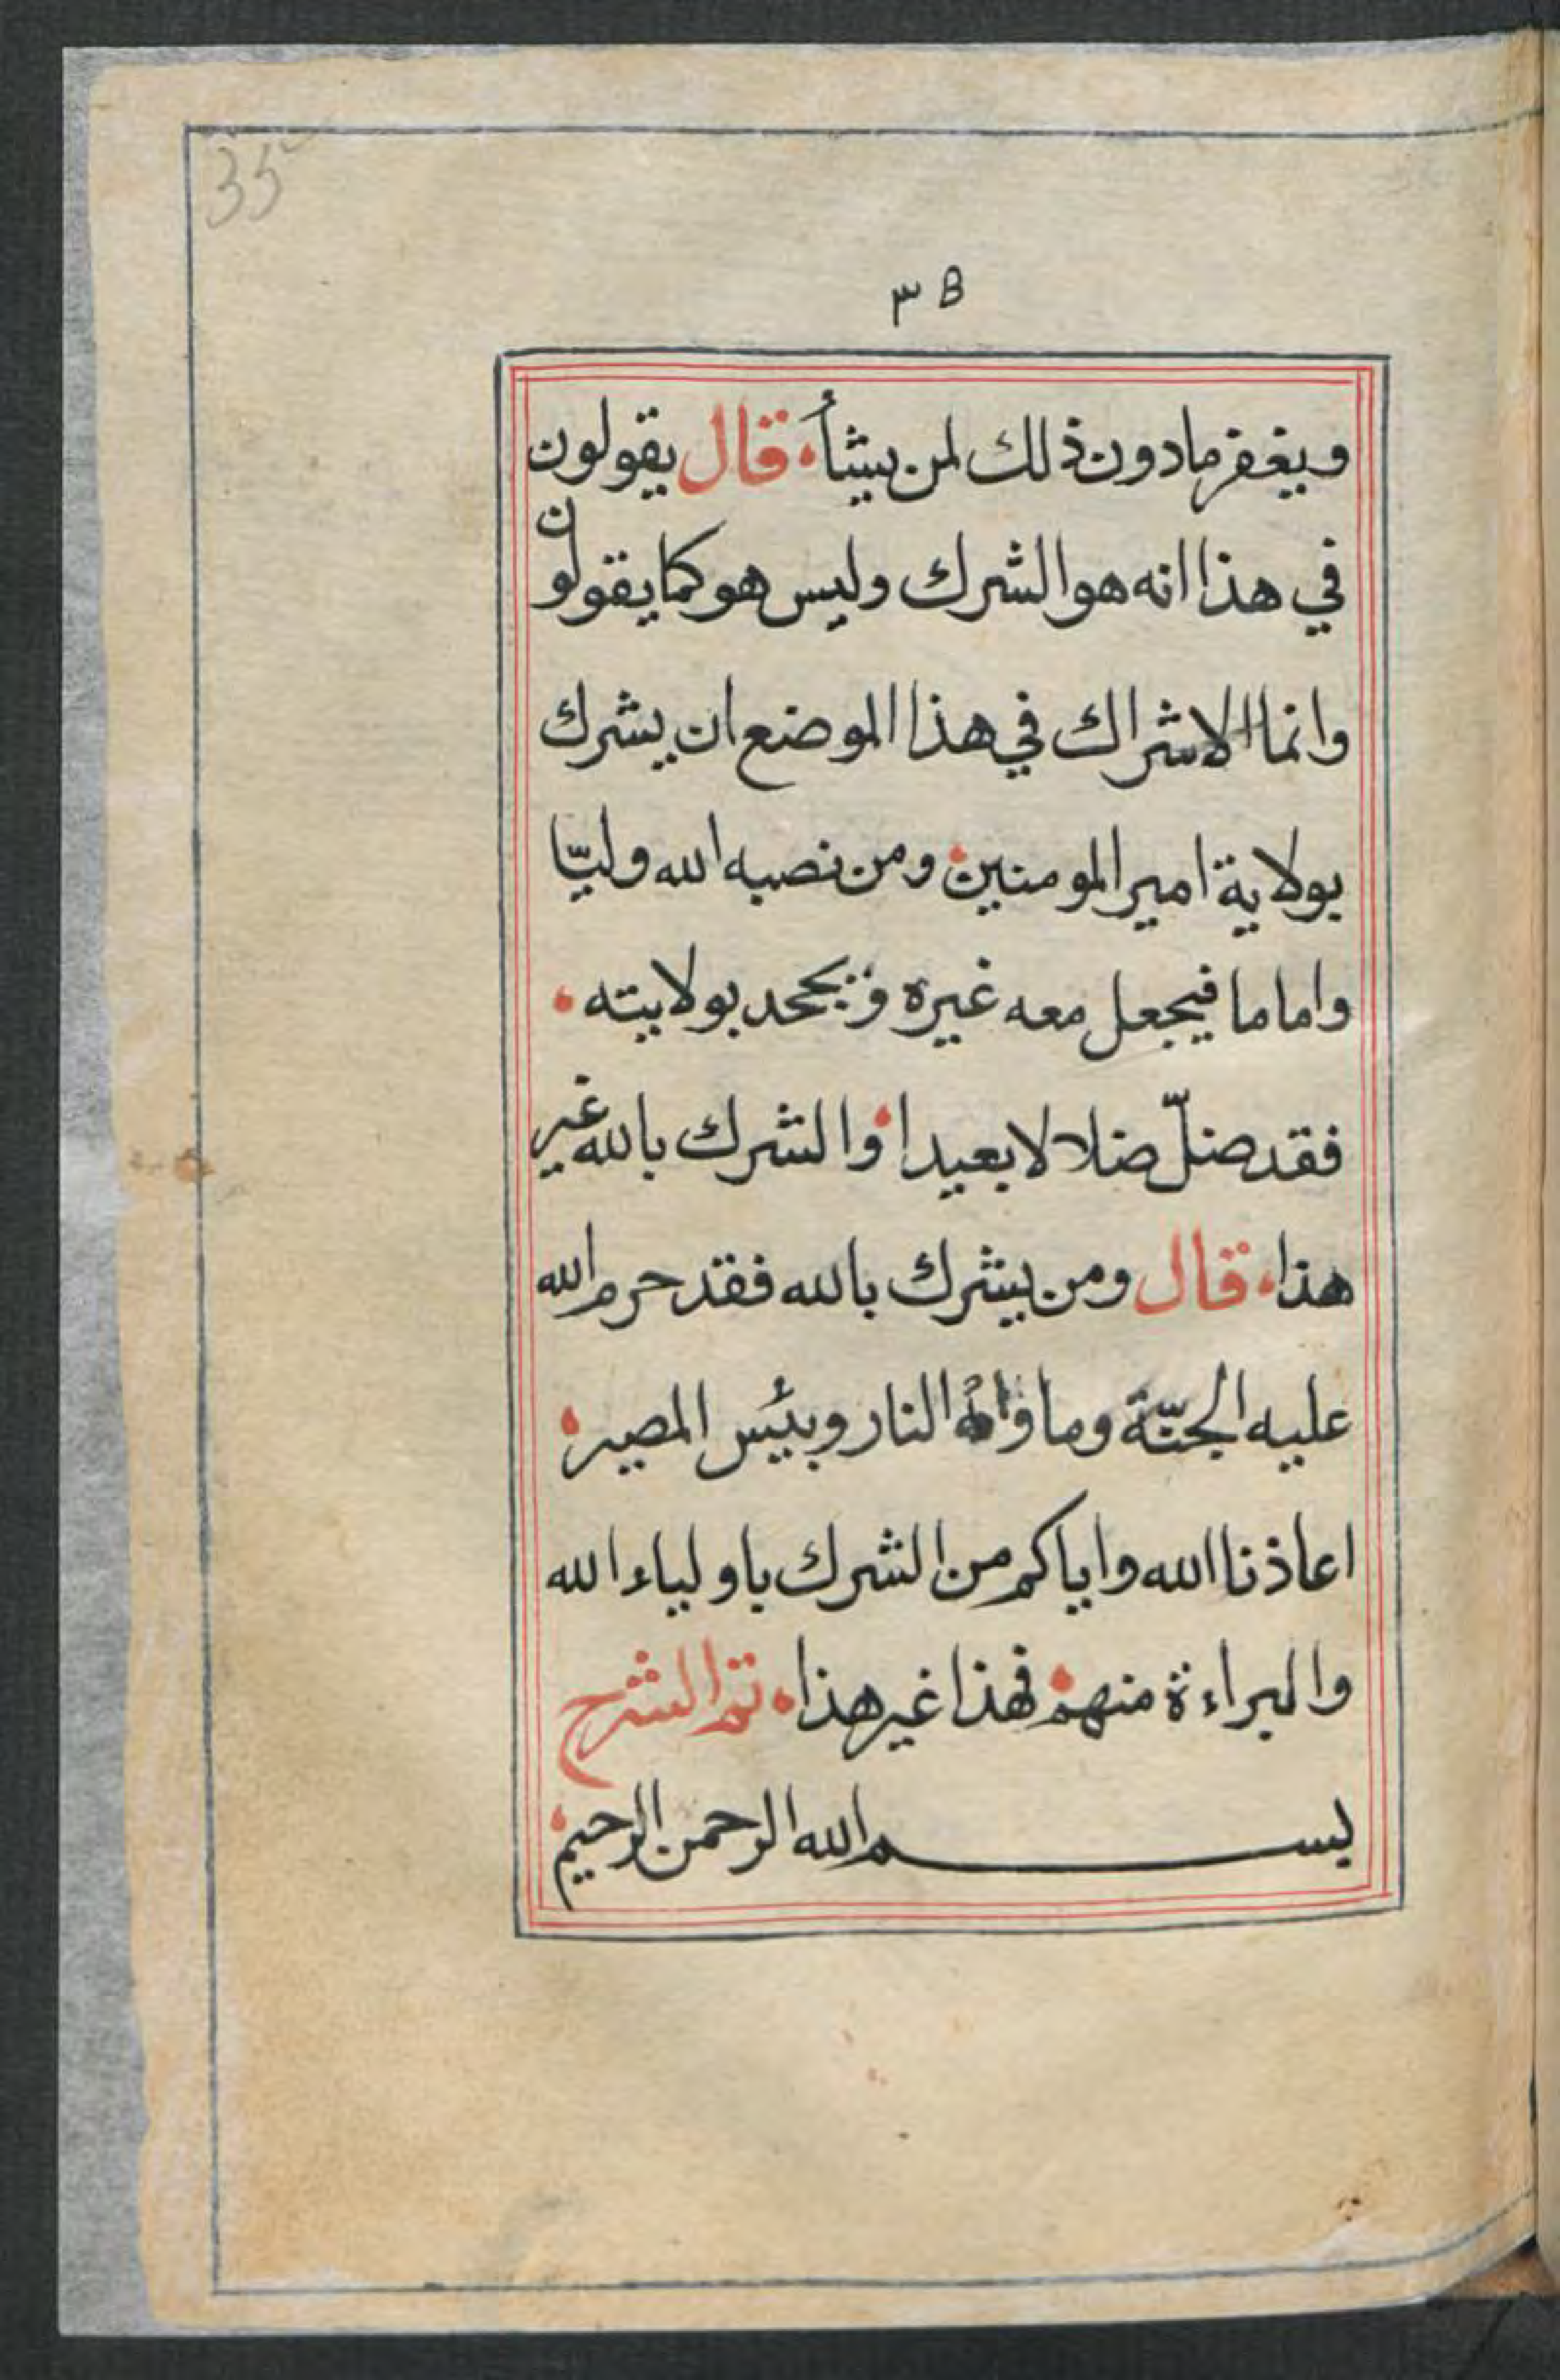 35
٣٥
ويغفر مادون ذلك لمن يشأ، قال يقولون
في هذا انه هو الشرك وليس هو كما يقولون
وانما الاشراك في هذا الموضع ان يشرك
بولاية امير المومنين ومن نصبه الله وليّا
واماما فيجعل معه غيره ويجحد بولايته
فقد ضلّ ضلالا بعيدا والشرك بالله غير
هذا، قال ومن يشرك بالله فقد حرم الله
عليه الجنّة وماواه النار وبئس المصير
اعاذنا الله واياكم من الشرك باولياء الله
والبراءة منهم فهذا غير هذا، تم الشرح
بسم الله الرحمن الرحيم